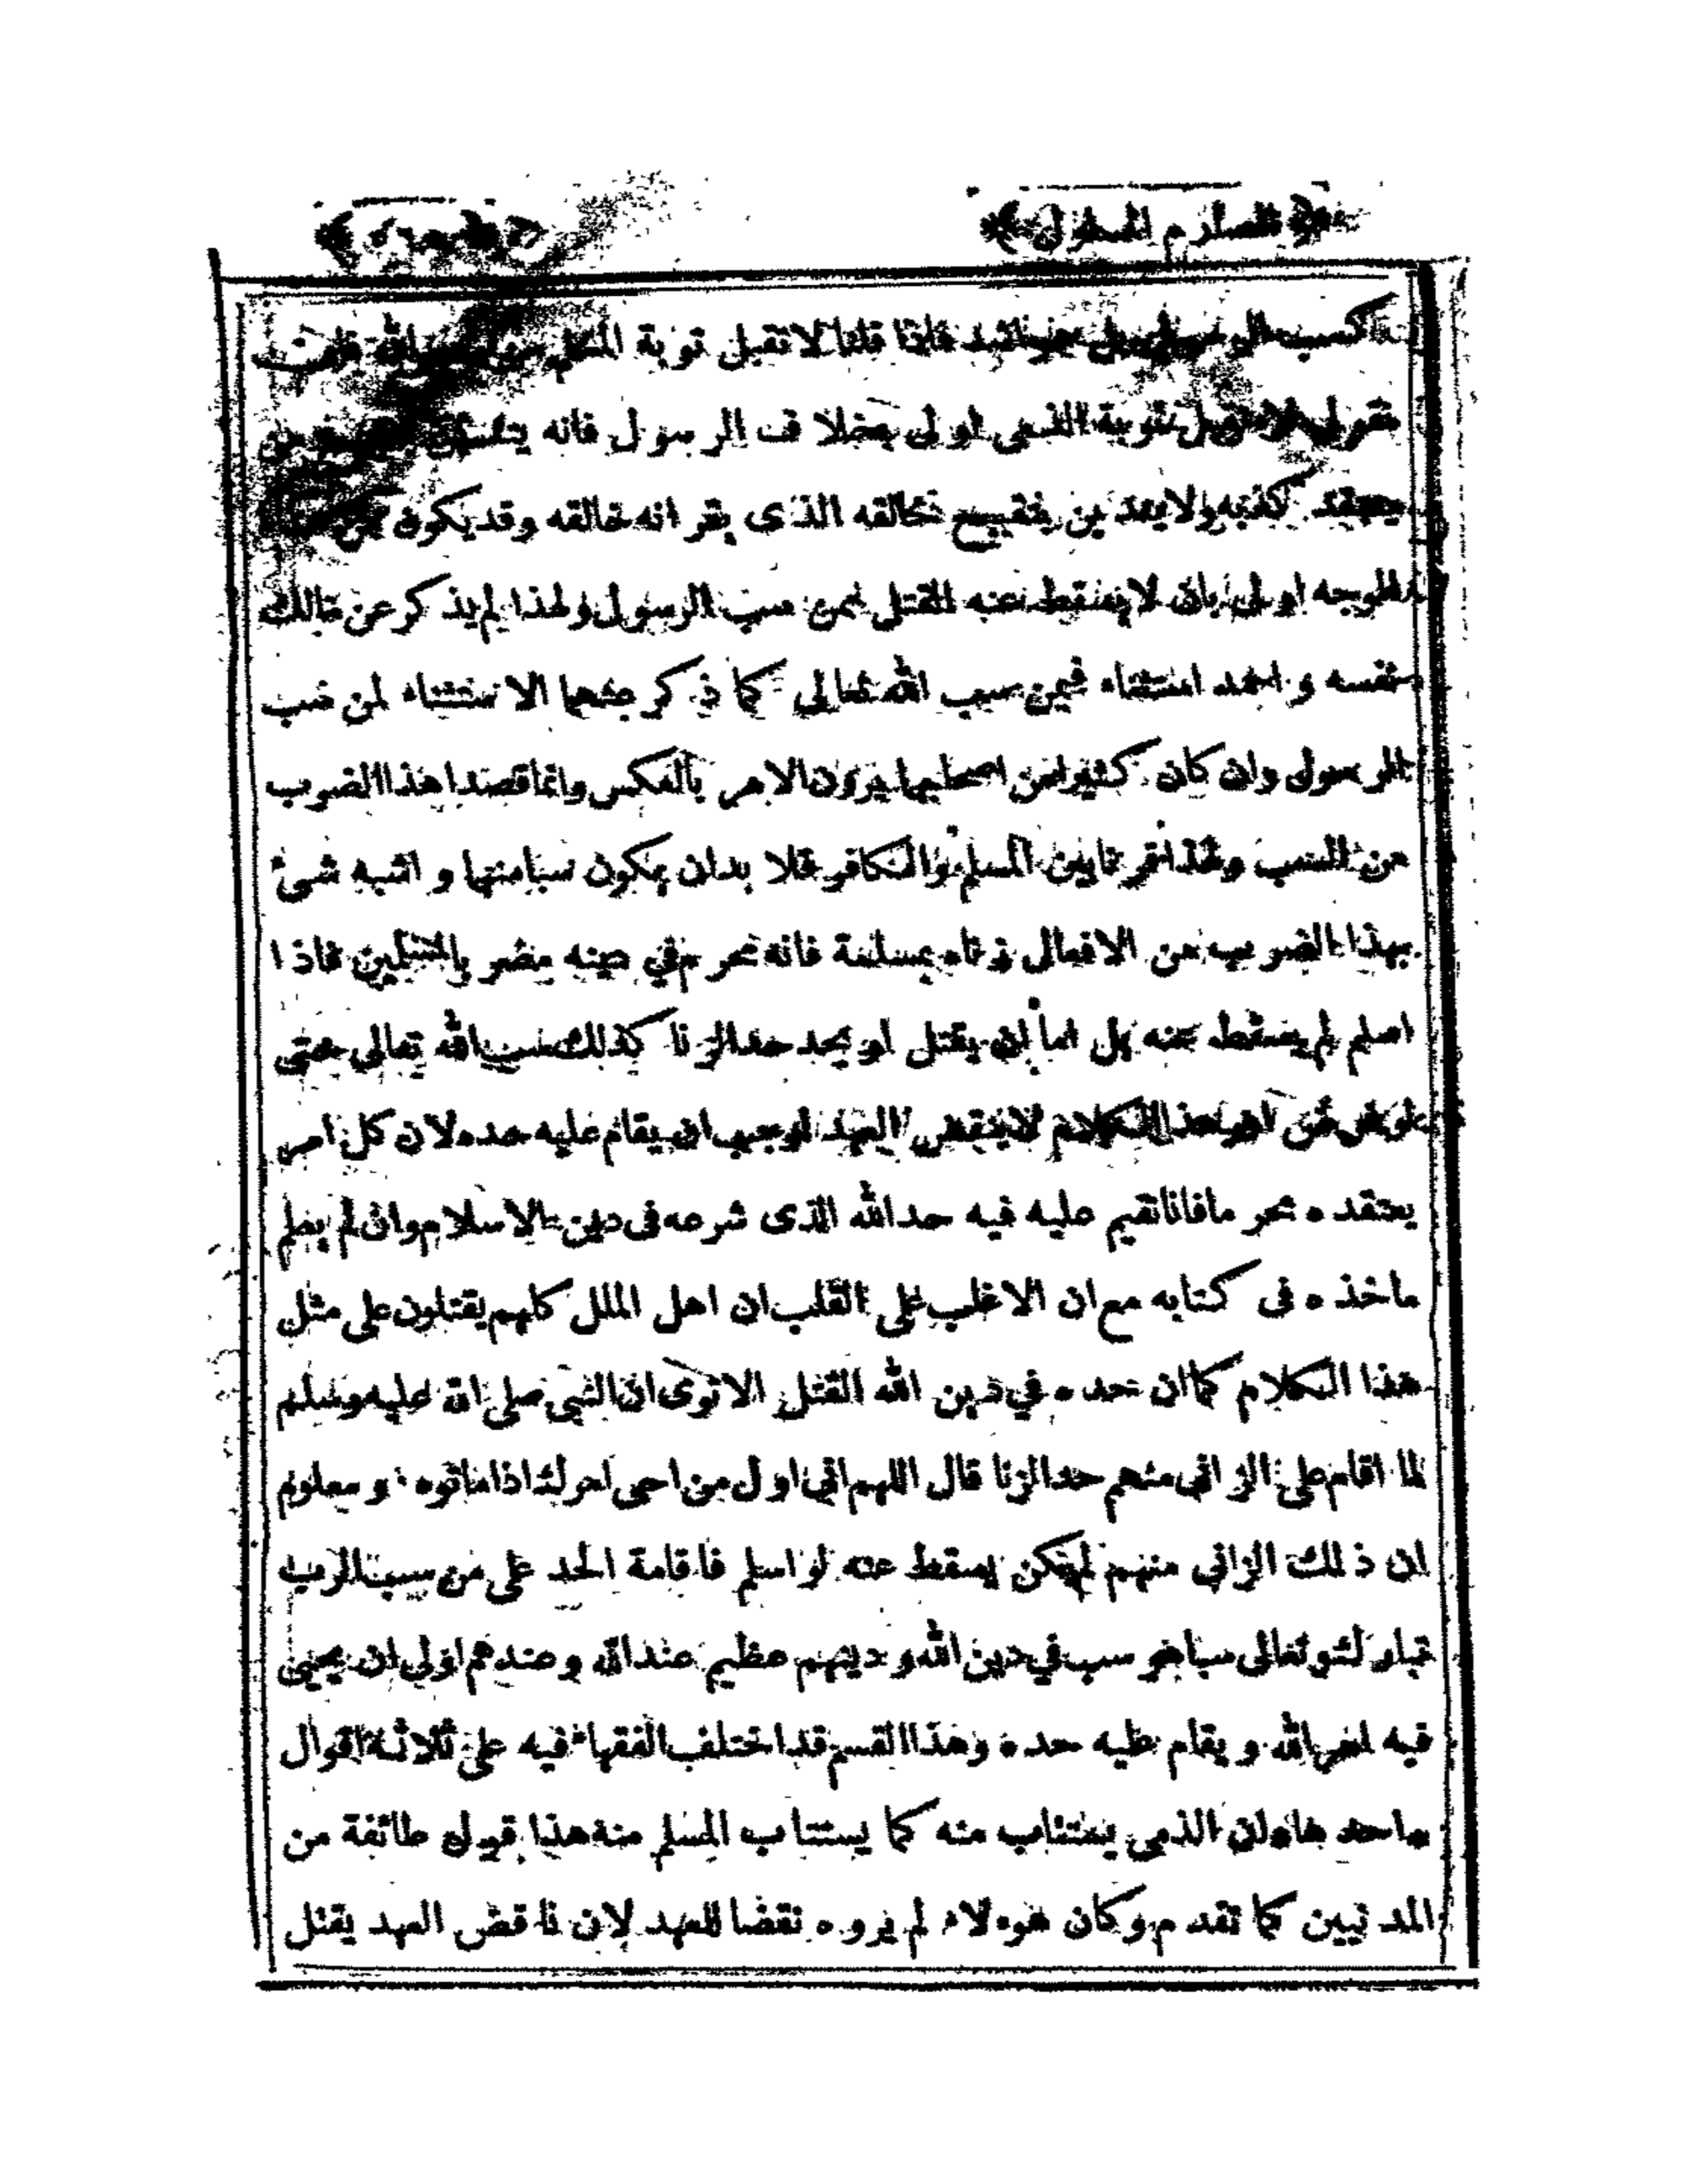 الصارم المسلول
كسب الرسول بل هو اشد فاذا قلنا لا تقبل توبة المسلم من سب الله
نقول لا تقبل توبة الذمى اولى بخلاف الرسول فانه
يعتقد كذبه ولا يتدين بتقبيح خالقه الذى يقر انه خالقه وقد يكون من
الوجه اولى بان لا يسقط عنه القتل ممن سب الرسول ولهذا لم يذكر عن مالك
نفسه و احمد استثناء فيمن سب الله تعالى كما ذكر عنهما الاستثناء لمن سب
الرسول وان كان كثير من اصحابهما يرون الامر بالعكس وانما قصدا هذا الضرب
من السب ولهذا قرنا بين المسلم والكافر فلا بدان يكون سبا منهما و اشبه شىء
بهذا الضرب من الافعال زناه بمسلمة فانه محرم في دينه مضر بالمسلمين فاذا
اسلم لم يسقط عنه بل اما ان يقتل او يحد حد الزنا كذلك سب الله تعالى حتى
لو فرض ان هذا الكلام لا ينقض العهد لوجب ان يقام عليه حده لان كل امر
يعتقده محرما فانا نقيم عليه فيه حد الله الذى شرعه فى دين الاسلام وان لم يعلم
ماخذه فى كتابه مع ان الاغلب على القلب ان اهل الملل كلهم يقتلون على مثل
هذا الكلام كما ان حده في دين الله القتل الا نوى ان النبى صلى الله عليه وسلم
لما اقام على الزانى منهم حد الزنا قال اللهم انى اول من احى امرك اذ اماتوه و معلوم
ان ذلك الزانى منهم لم يكن يسقط عنه لو اسلم فاقامة الحد على من سب الرب
تبارك و تعالى سبا هو سب في دين الله و دينهم عظيم عند الله و عندهم اولى ان يحيى
فيه امر الله و يقام عليه حده وهذا القسم قد اختلف الفقهاء فيه على ثلاثة اقوال
احدها ان الذمى يستتاب منه كما يستتاب المسلم منه هذا قول طائفة من
المدنيين كما تقدم وكان هوءلاء لم يروه نقضا للعهد لان ناقض العهد يقتل